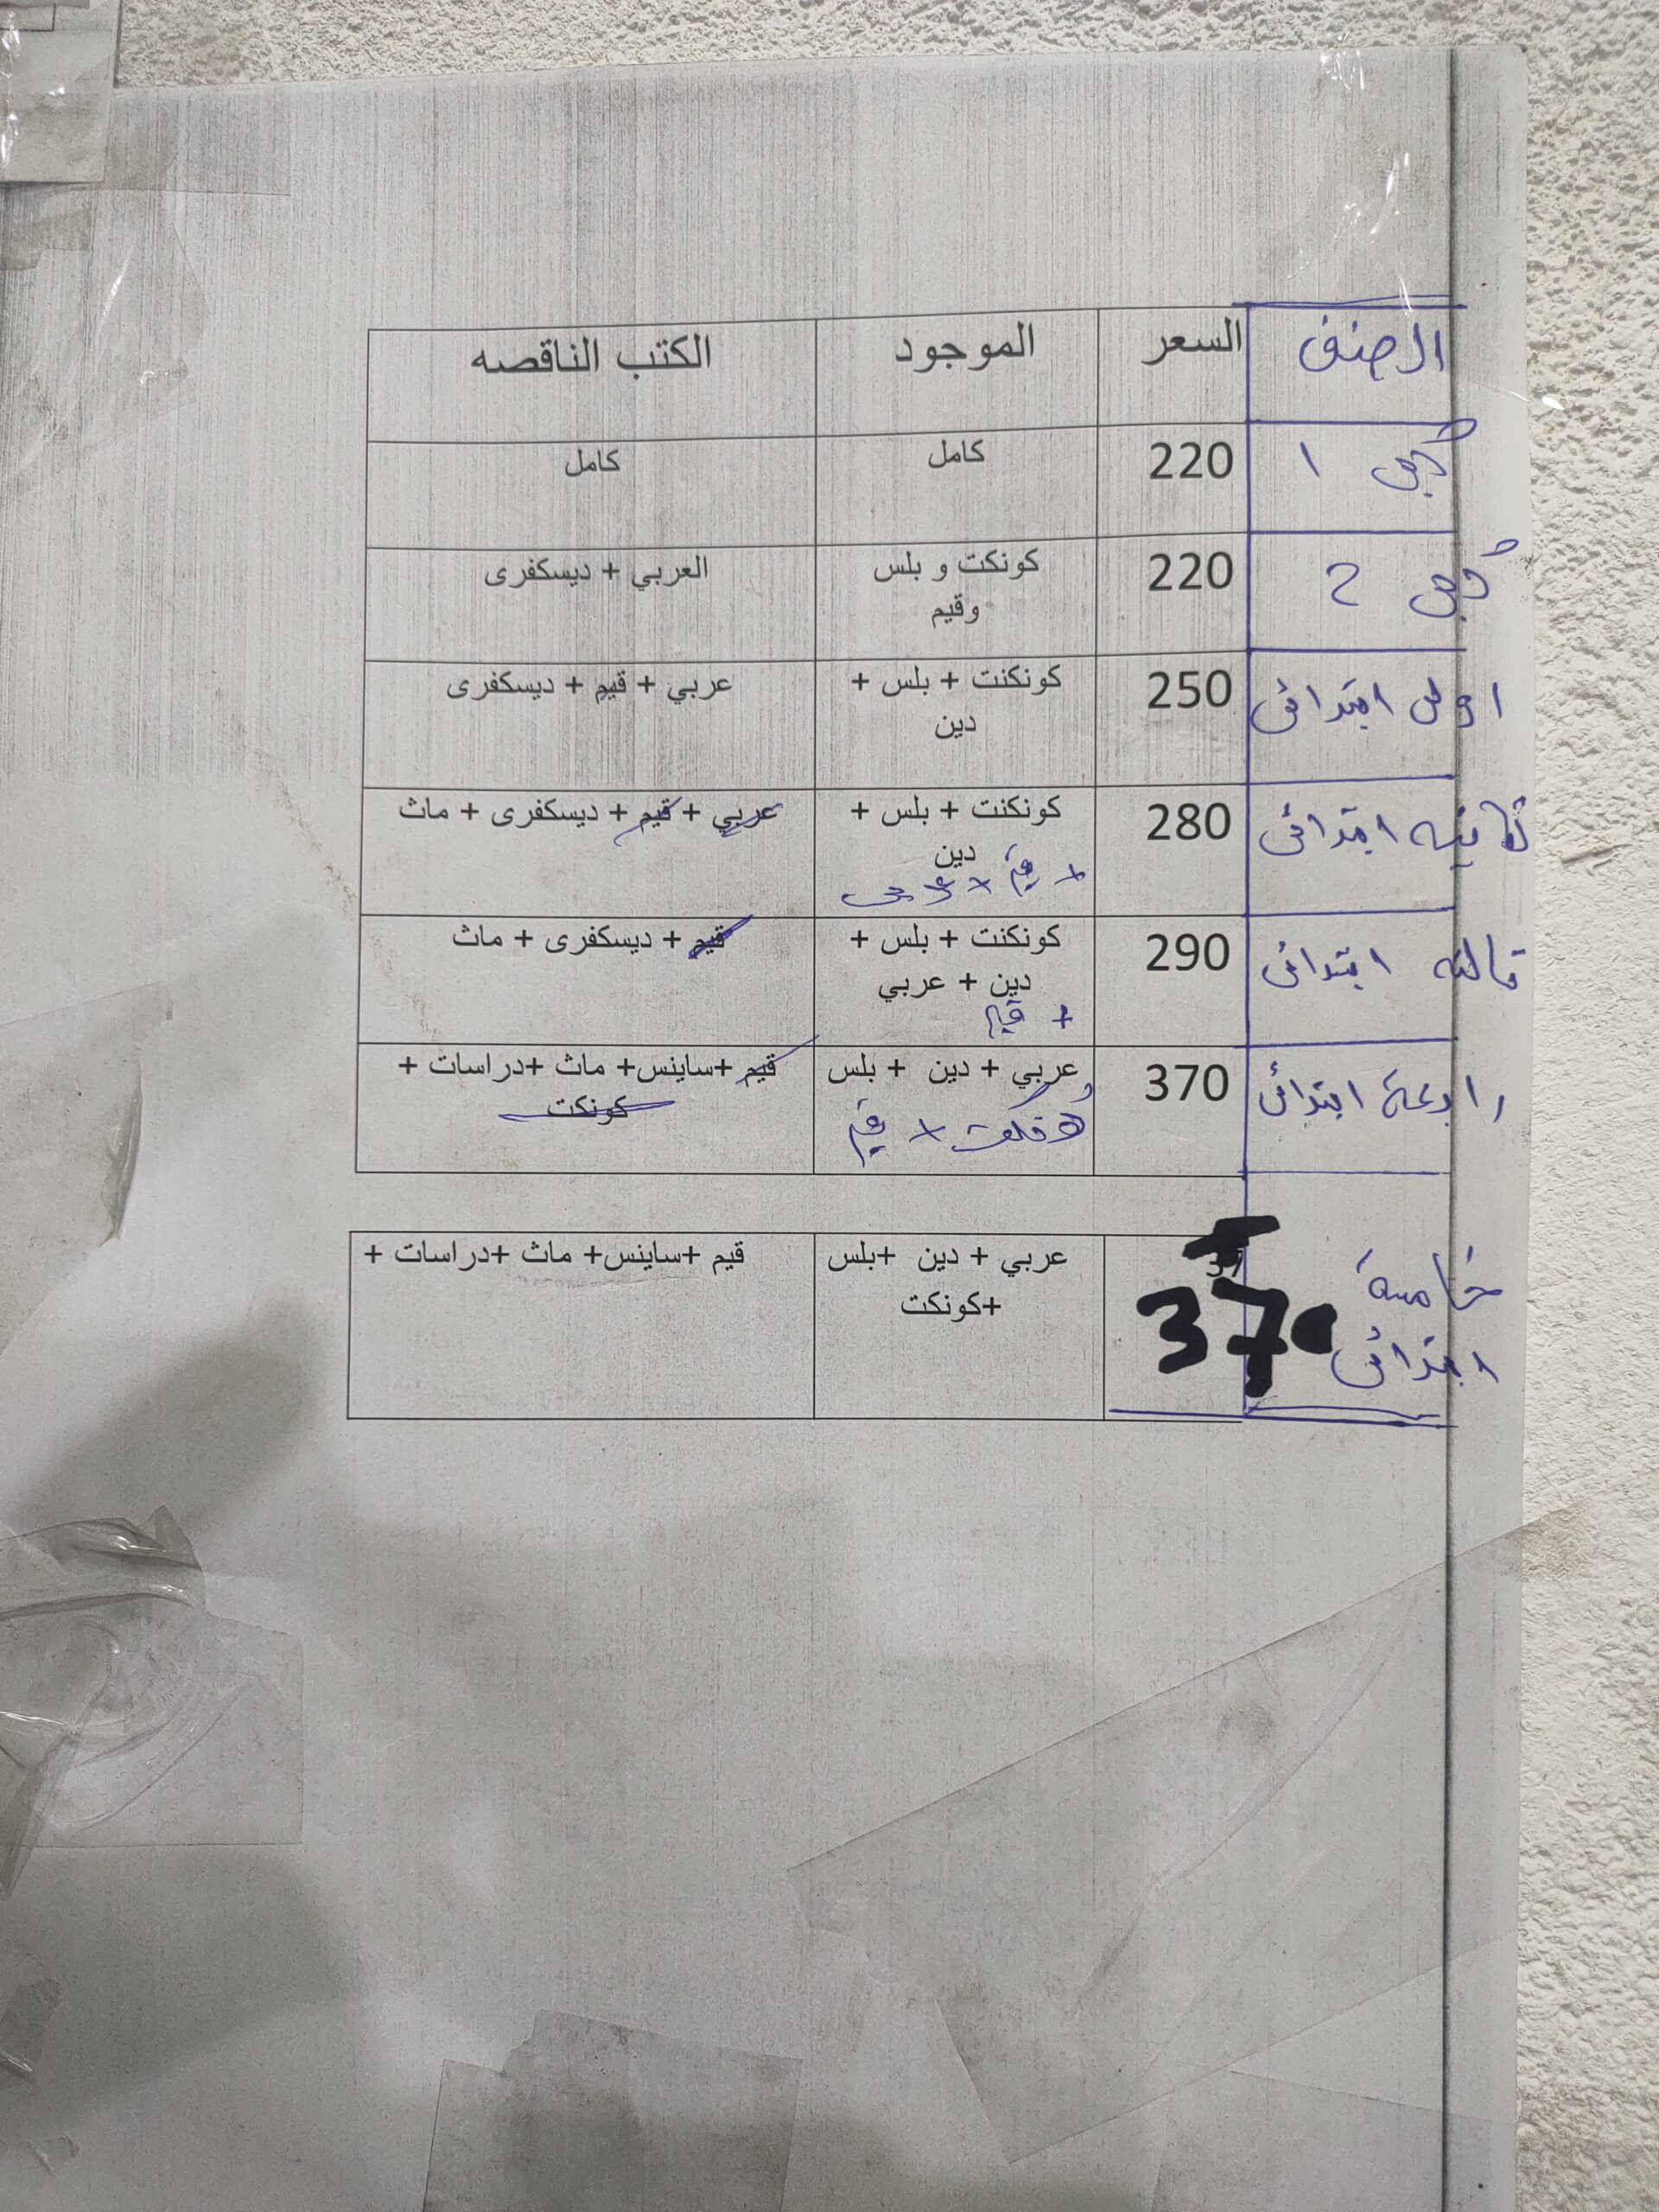 الصنف السعر الموجود الكتب الناقصه
كجى 1 220 كامل كامل
كجى 2 220 كونكت و بلس العربي + ديسكفرى
وقيم
اولى ابتدائى 250 كونكنت + بلس + عربي + قيم + ديسكفرى
دين
ثانيه ابتدائى 280 كونكنت + بلس + عربي + قيم + ديسكفرى + ماث
دين
+ قيم + عربى
ثالثه ابتدائى 290 كونكنت + بلس + قيم + ديسكفرى + ماث
دين + عربي
+ قيم
رابعة ابتدائى 370 عربي + دين + بلس قيم +ساينس+ ماث +دراسات +
كونكت + قيم كونكت
خامسة عربي + دين +بلس قيم +ساينس+ ماث +دراسات +
ابتدائى 370 +كونكت